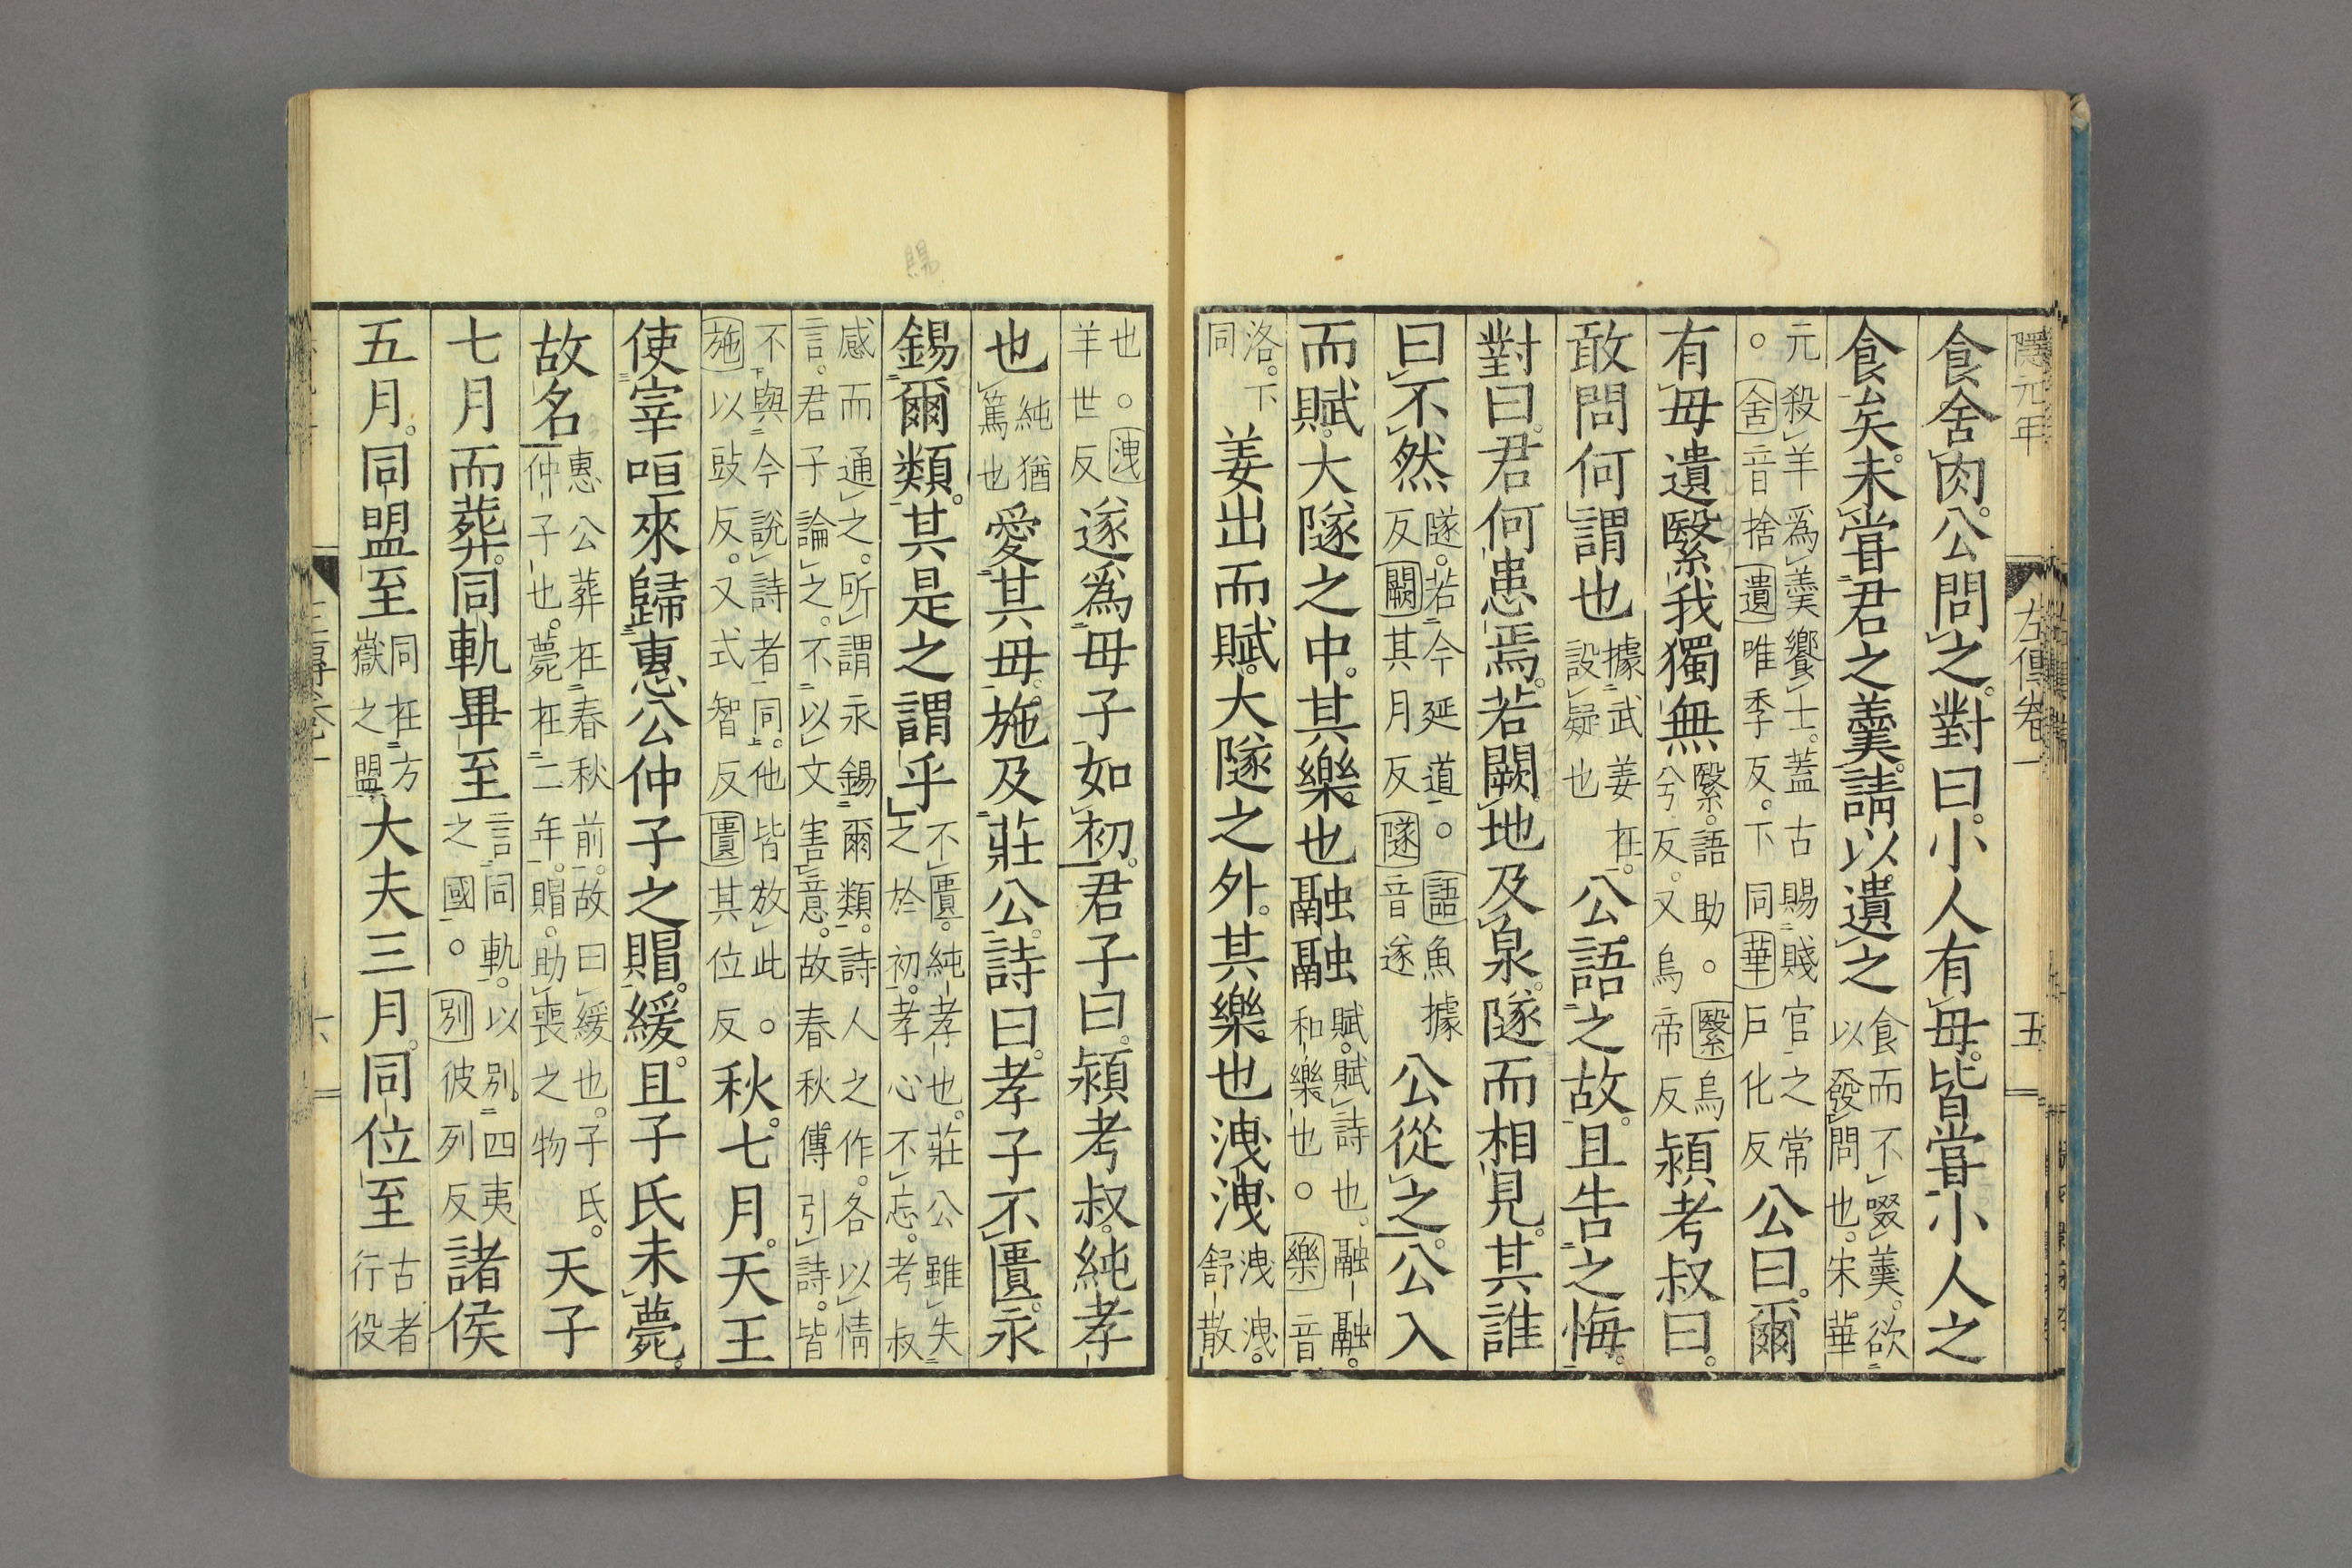 隱元年
左傳卷一
五
食舍肉。公問之。對曰。小人有母。皆嘗小人之
食矣。未嘗君之羹。請以遺之食而不啜羹。欲以發問也。宋華
元殺羊爲羹饗士。蓋古賜賤官之常。○舍音捨遺唯季反。下同華戶化反公曰。爾
有母遺繄我獨無繄。語助。○繄烏兮反。又烏帝反潁考叔曰。
敢問何謂也據武姜在。設疑也公語之故。且告之悔。
對曰。君何患焉。若闕地及泉。隧而相見。其誰
曰不然隧。若今延道。○語魚據反闕其月反隧音遂公從之。公入
而賦。大隧之中。其樂也融融賦。賦詩也。融融。和樂也。○樂音
洛。下同姜出而賦。大隧之外。其樂也洩洩洩洩。舒散
也。○洩羊世反遂爲母子如初。君子曰。潁考叔。純孝
也純猶篤也愛其母。施及莊公。詩曰。孝子不匱。永
錫爾類。其是之謂乎不匱。純孝也。莊公雖失之於初。孝心不忘。考叔
感而通之。所謂永錫爾類。詩人之作。各以情言。君子論之。不以文害意。故春秋傳引詩。皆
不與今說詩者同。他皆放此。○施以豉反。又式智反匱其位反秋。七月。天王
使宰咺來歸惠公仲子之賵。緩。且子氏未薨。
故名惠公葬在春秋前。故曰緩也。子氏。仲子也。薨在二年。賵。助喪之物天子
七月而葬。同軌畢至言同軌。以別四夷之國。○別彼列反諸侯
五月。同盟至同在方嶽之盟大夫三月。同位至古者行役